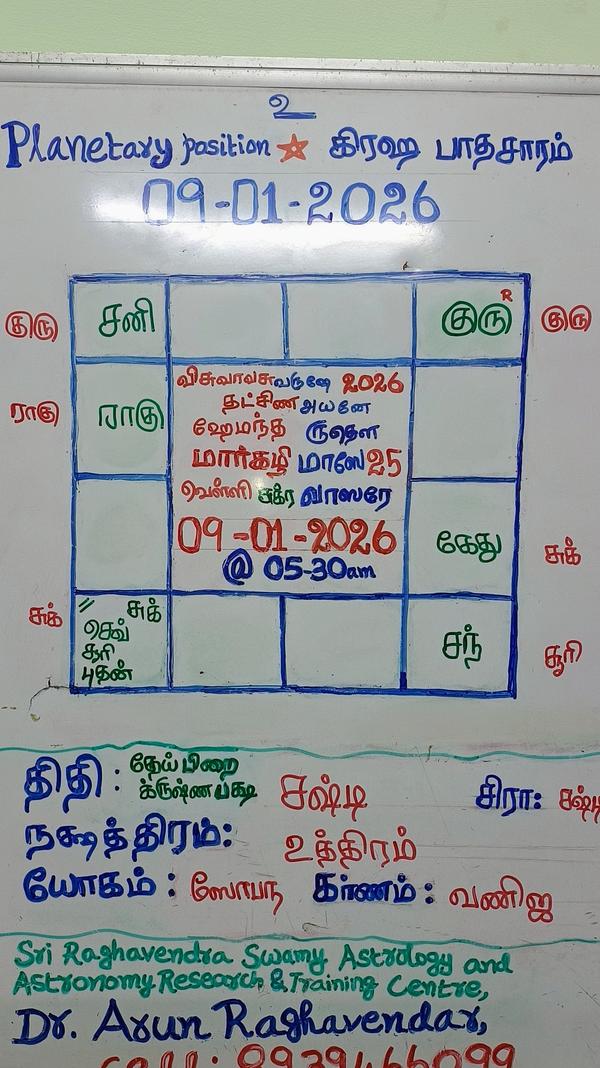 உ
Planetary position ★ கிரஹ பாதசாரம்
09-01-2026
குரு சனி குரு R குரு
விசுவாவசுவருஷே 2026
ராகு ராகு தட்சிண அயனே
ஹேமந்த ருதௌ
மார்கழி மாஸே 25
வெள்ளி சுக்ர வாஸரே
கேது சுக்
09-01-2026
@ 05-30am
சுக் // சுக் செவ் சூரி புதன் சந் சூரி
திதி : தேய்பிறை
க்ருஷ்ணபக்ஷ சஷ்டி சிரா:
நக்ஷத்திரம்: உத்திரம்
யோகம் : ஸோபந கர்ணம் : வணிஜ
Sri Raghavendra Swamy Astrology and
Astronomy Research & Training Centre,
Dr. Arun Raghavendar,
call: 8939466099